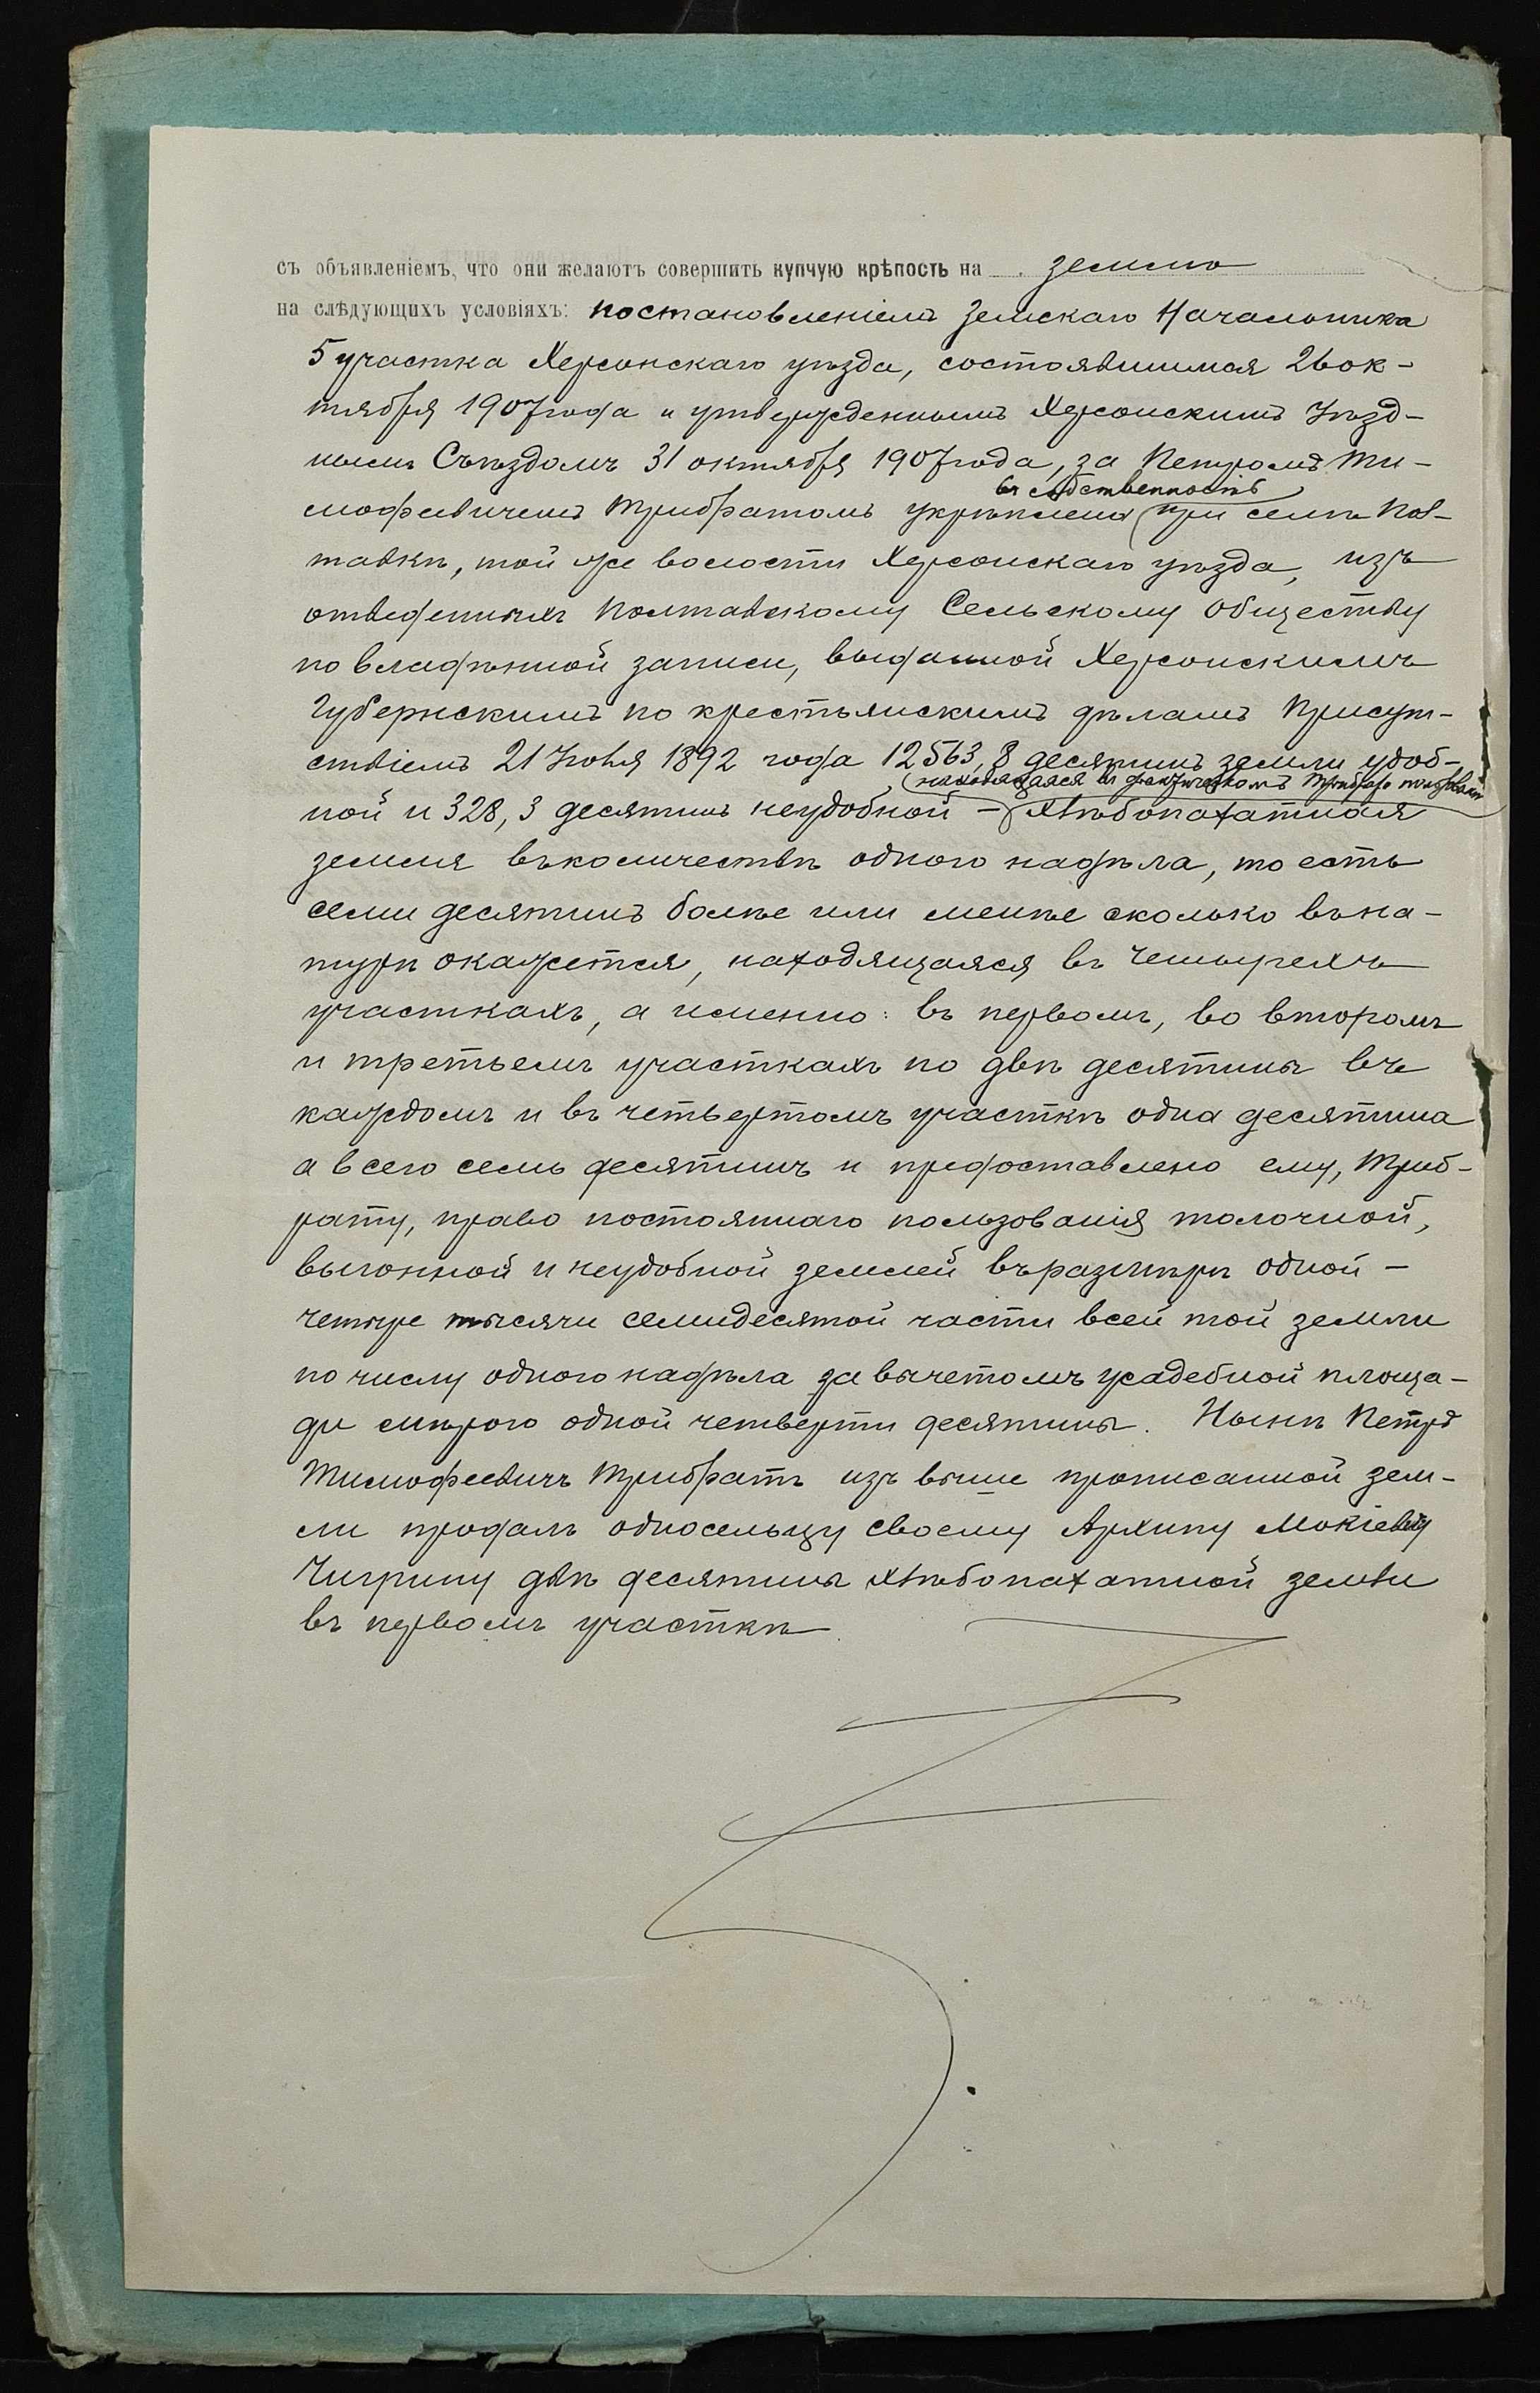 съ объявленіемъ, что они желаютъ совершить купчую крѣпость на землю
на слѣдующихъ условіяхъ: постановленіемъ Земскаго Начальника
5 участка Херсонскаго уѣзда, состоявшимся 26 ок-
тября 1907 года и утвержденнымъ Херсонскимъ Уѣзд-
нымъ Съѣздомъ 31 октября 1907 года, за Петромъ Ти-
въ собственность
мофеевичемъ Трибратомъ укрѣплена при селѣ Пол-
тавкѣ, той же волости Херсонскаго уѣзда, изъ
отведенныхъ Полтавскому Сельскому Обществу
по владѣнной записи, выданной Херсонскимъ
Губернскимъ по крестьянскимъ дѣламъ Присут-
ствіемъ 21 Іюля 1892 года 12563,8 десятинъ земли удоб-
находящаяся въ фактическомъ Трибрата пользованіи
ной и 328,3 десятинъ неудобной – хлѣбопахатная
земля въ количествѣ одного надѣла, то есть
семи десятинъ болѣе или менѣе сколько въ на-
турѣ окажется, находящаяся въ четырехъ
участкахъ, а именно: въ первомъ, во второмъ
и третьемъ участкахъ по двѣ десятины въ
каждомъ и въ четвертомъ участкѣ одна десятина
а всего семь десятинъ и предоставлено ему, Триб-
рату, право постояннаго пользованія толочной,
выгонной и неудобной землей въ размѣрѣ одной –
четыре тысячи семидесятой части всей той земли
по числу одного надѣла за вычетомъ усадебной площа-
ди мѣрою одной четверти десятины. Нынѣ Петръ
Тимофеевичъ Трибратъ изъ выше прописанной зем-
ли продалъ односельцу своему Архипу Мокіевичу
Чигрину двѣ десятины хлѣбопахатной земли
въ первомъ участкѣ